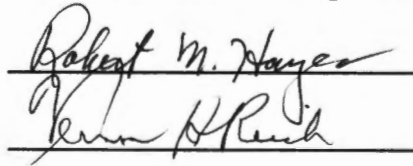 Robert M. Hayes
Vernon H Reich